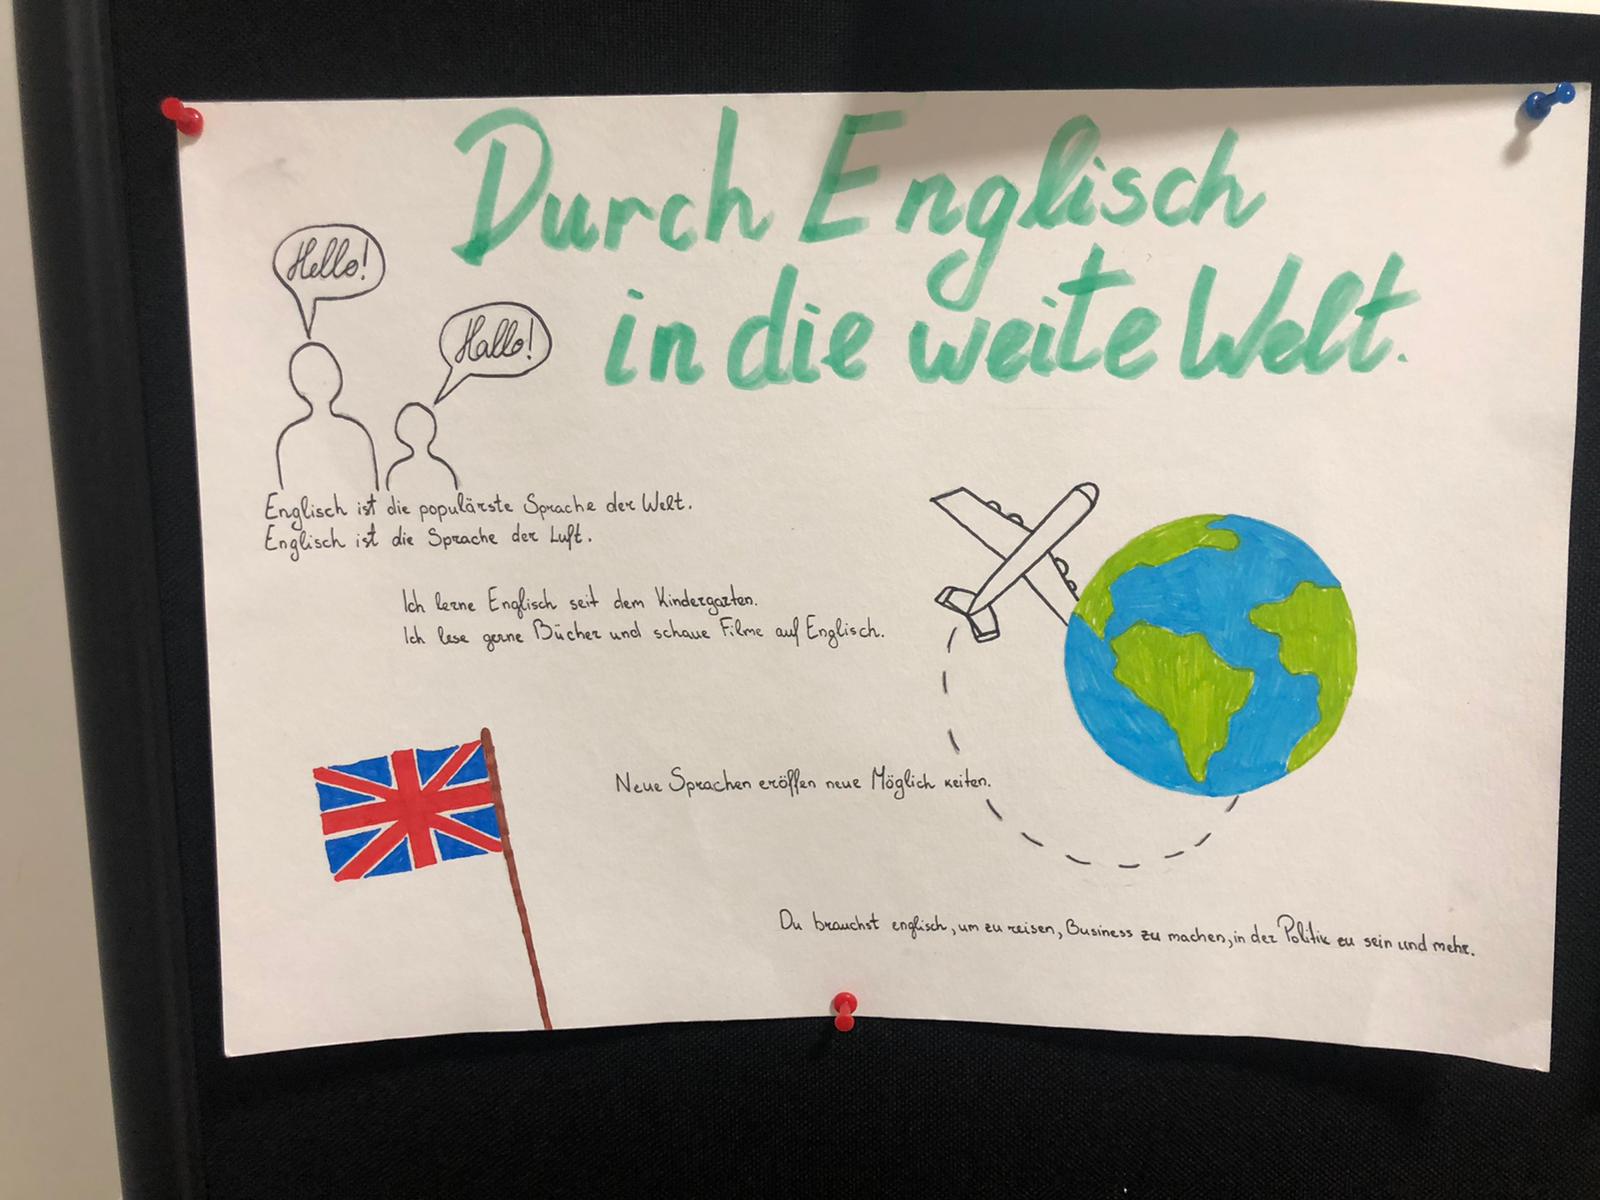 Durch Englisch
in die weite Welt.
Hello!
Hallo!
Englisch ist die populärste Sprache der Welt.
Englisch ist die Sprache der Luft.
Ich lerne Englisch seit dem Kindergarten.
Ich lese gerne Bücher und schaue Filme auf Englisch.
Neue Sprachen eröffen neue Möglich keiten.
Du brauchst englisch, um zu reisen, Business zu machen, in der Politik zu sein und mehr.